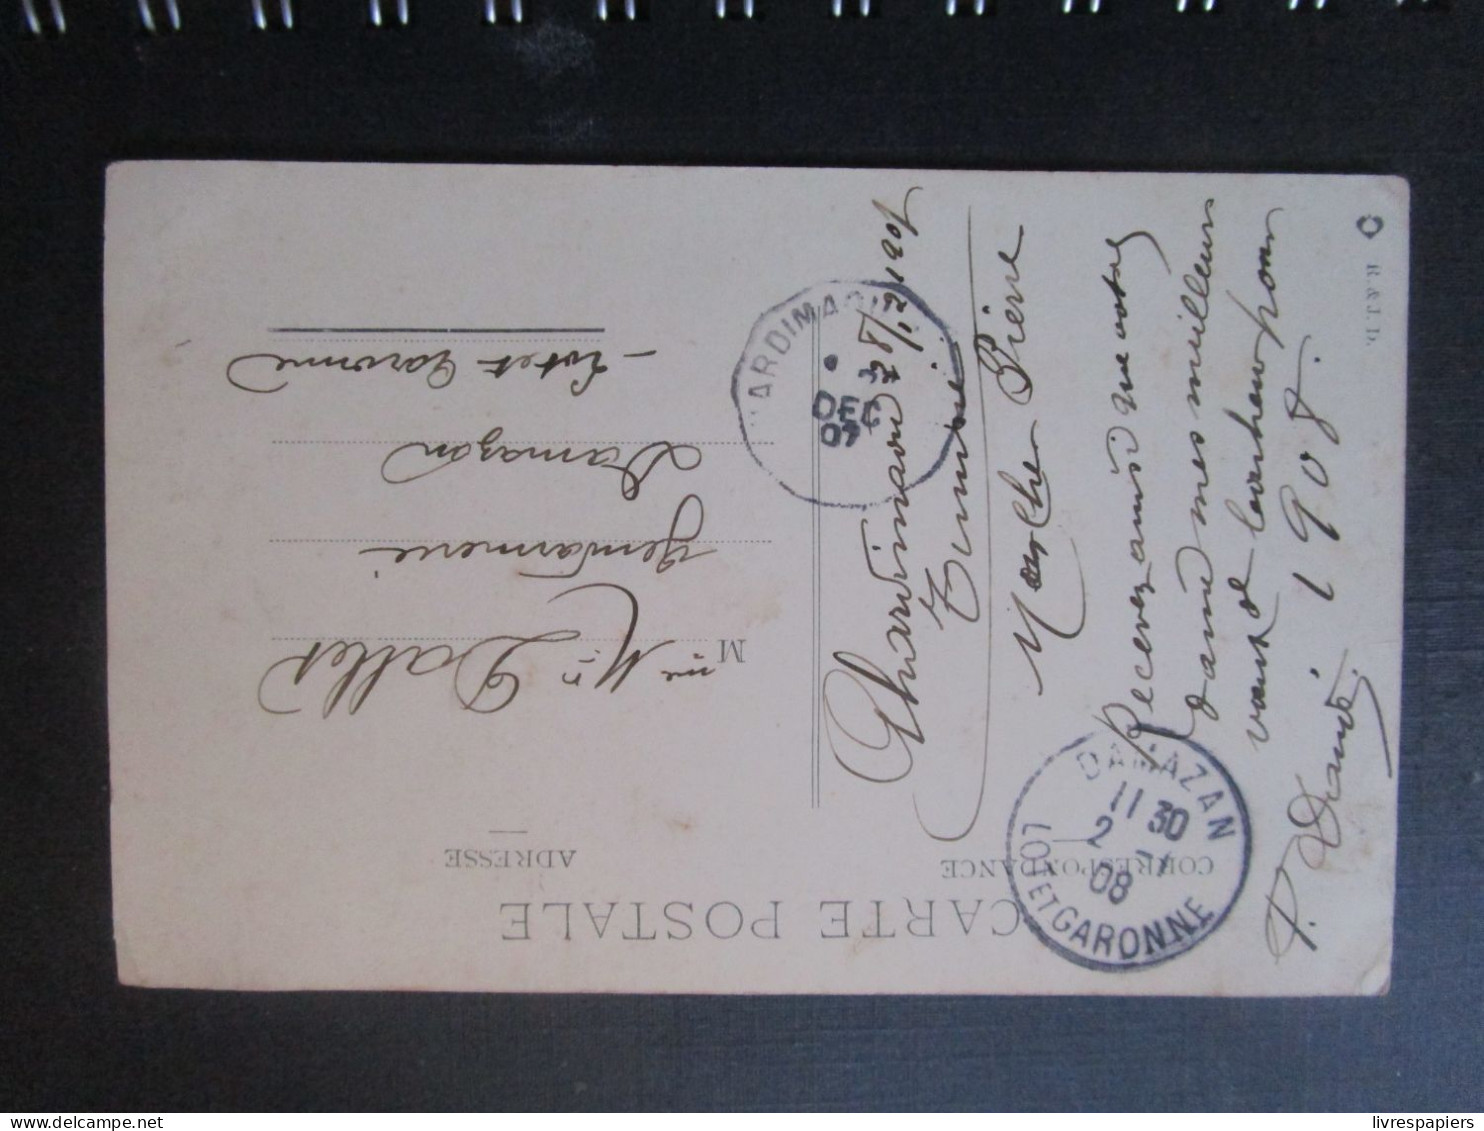 CARTE POSTALE
CORRESPONDANCE
ADRESSE
R. & J. D.
Ghardimaou 28/12 1907
Tunisie
Mon cher Pierre
Recevez ainsi que votre
dame mes meilleurs
vœux de bonheur pour
1908.
P.
M
me Mr Dallet
Gendarmerie
Damazan
Lot et Garonne
ARDIMAO
DEC
07
DAMAZAN
11 30
2
08
LOT ET GARONNE
livrespapiers